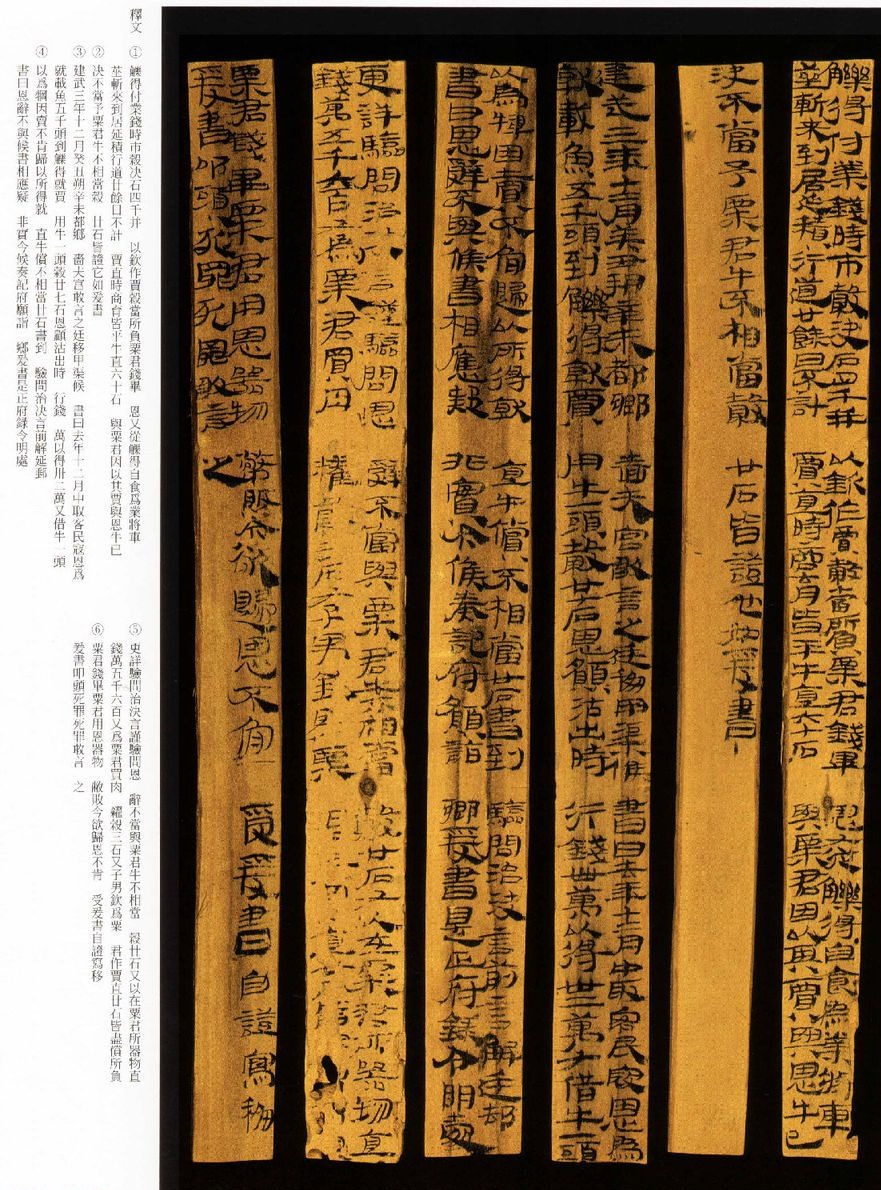 觻得付業錢時市穀決石四千并 以欽作賈穀當所負粟君錢畢 恩又從觻得自食為業將車
莝斬來到居延積行道廿餘日不計 賈直時商育皆平牛直六十石 與粟君因以其賈與恩牛已
決不當予粟君牛不相當穀 廿石皆證也如爰書
建武三年十二月癸丑朔辛未都鄉 嗇夫宮敢言之廷移甲渠候 書曰去年十二月中取客民寇恩為
就載魚五千頭到觻得就賈 用牛一頭穀廿七石恩願沽出時 行錢卌萬以得卅二萬又借牛一頭
以為犅因賣不肯歸以所得就 直牛償不相當廿石書到 驗問治決言前言解廷郵
書曰恩辭不與候書相應疑 非實今候奏記府願詣 鄉爰書是正府錄令明處
更詳驗問治決言謹驗問恩 辭不當與粟君牛不相當 穀廿石又以在粟君所器物直
錢萬五千六百又為粟君買肉 糴穀三石又子男欽為粟
粟君錢畢粟君用恩器物 幣敗今欲歸恩不肯 受爰書自證寫移
爰書叩頭死罪死罪敢言 之
釋文
① 觻得付業錢時市穀決石四千并 以欽作賈穀當所負粟君錢畢 恩又從觻得自食爲業將車
莝斬來到居延積行道廿餘日不計 賈直時商育皆平牛直六十石 與粟君因以其賈與恩牛已
② 決不當予粟君牛不相當穀 廿石皆證它如爰書
③ 建武三年十二月癸丑朔辛未都鄉 嗇夫宮敢言之廷移甲渠候 書曰去年十二月中取客民寇恩爲
就載魚五千頭到觻得就賈 用牛一頭穀廿七石恩顧沽出時 行錢 萬以得卅二萬又借牛一頭
④ 以爲犅因賣不肯歸以所得就 直牛償不相當廿石書到 驗問治決言前解廷郵
書曰恩辭不與候書相應疑 非實今候奏記府願詣 鄉爰書是正府錄令明處
⑤ 更詳驗問治決言謹驗問恩 辭不當與粟君牛不相當 穀廿石又以在粟君所器物直
錢萬五千六百又爲粟君買肉 糴穀三石又子男欽爲粟 君作賈直廿石皆盡償所負
⑥ 粟君錢畢粟君用恩器物 敝敗今欲歸恩不肯 受爰書自證寫移
爰書叩頭死罪死罪敢言 之